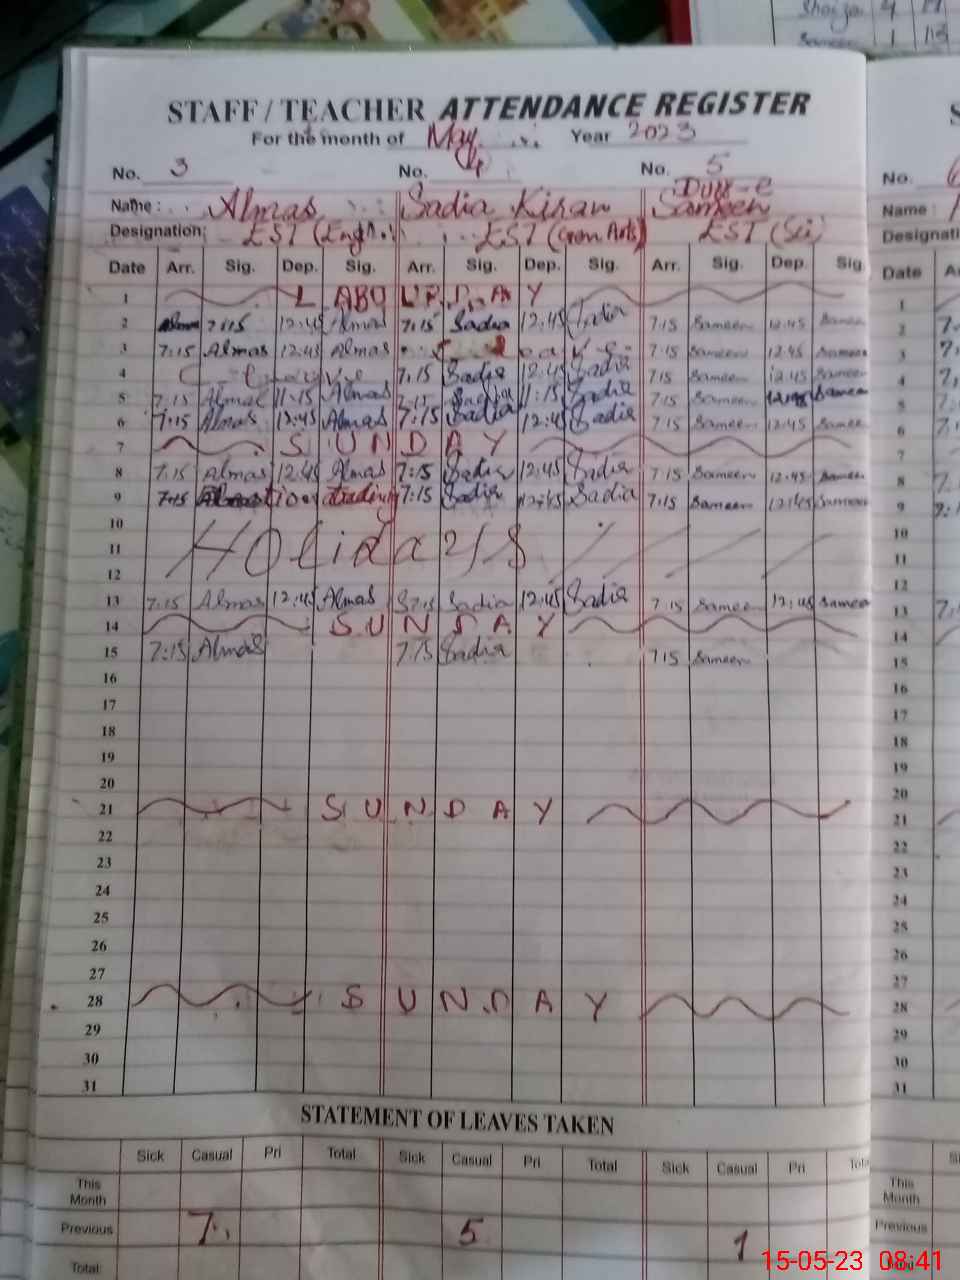 Shaiza 4
Sameen 1 113
STAFF / TEACHER ATTENDANCE REGISTER
For the month of May Year 2023
No. 3 No. 4 No. 5 No. 6
Name: Almas Sadia Kiran Durr-e Sameen Name
Designation: EST (Eng) EST (Gen Arts) EST (Sci) Designati
Date Arr. Sig. Dep. Sig. Arr. Sig. Dep. Sig. Arr. Sig. Dep. Sig Date
1 LABOUR DAY 1
2 Almas 7:15 12:45 Almas 7:15 Sadia 12:45 Sadia 7:15 Sameen 12:45 Sameen 2
3 7:15 Almas 12:45 Almas 7:15 Sameen 12:45 Sameen 3
4 C. Leave 7:15 Sadia 12:45 Sadia 7:15 Sameen 12:45 Sameen 4
5 7:15 Almas 11:15 Almas 7:15 Sadia 11:15 Sadia 7:15 Sameen Sameen 5
6 7:15 Almas 12:45 Almas 7:15 Sadia 12:45 Sadia 7:15 Sameen 12:45 Sameen 6
7 SUNDAY 7
8 7:15 Almas 12:45 Almas 7:15 Sadia 12:45 Sadia 7:15 Sameen 12:45 Sameen 8
9 7:15 7:15 Sadia 12:45 Sadia 7:15 Sameen 12:45 Sameen 9
10 10
11 Holidays 11
12 12
13 7:15 Almas 12:45 Almas 7:15 Sadia 12:45 Sadia 7:15 Sameen 12:45 Sameen 13
14 SUNDAY 14
15 7:15 Almas 7:15 Sadia 7:15 Sameen 15
16 16
17 17
18 18
19 19
20 20
21 SUNDAY 21
22 22
23 23
24 24
25 25
26 26
27 27
28 SUNDAY 28
29 29
30 30
31 31
STATEMENT OF LEAVES TAKEN
Sick Casual Pri Total Sick Casual Pri Total Sick Casual Pri Tota
This Month This Month
Previous 7 5 1 Previous
Total
15-05-23 08:41